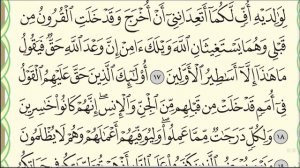 لِوَٰلِدَيْهِ أُفٍّ لَّكُمَآ أَتَعِدَانِنِىٓ أَنْ أُخْرَجَ وَقَدْ خَلَتِ ٱلْقُرُونُ مِن
قَبْلِى وَهُمَا يَسْتَغِيثَانِ ٱللَّهَ وَيْلَكَ ءَامِنْ إِنَّ وَعْدَ ٱللَّهِ حَقٌّ فَيَقُولُ
مَا هَٰذَآ إِلَّآ أَسَٰطِيرُ ٱلْأَوَّلِينَ ١٧ أُو۟لَٰٓئِكَ ٱلَّذِينَ حَقَّ عَلَيْهِمُ ٱلْقَوْلُ
فِىٓ أُمَمٍ قَدْ خَلَتْ مِن قَبْلِهِم مِّنَ ٱلْجِنِّ وَٱلْإِنسِ إِنَّهُمْ كَانُوا۟ خَٰسِرِينَ
١٨ وَلِكُلٍّ دَرَجَٰتٌ مِّمَّا عَمِلُوا۟ وَلِيُوَفِّيَهُمْ أَعْمَٰلَهُمْ وَهُمْ لَا يُظْلَمُونَ